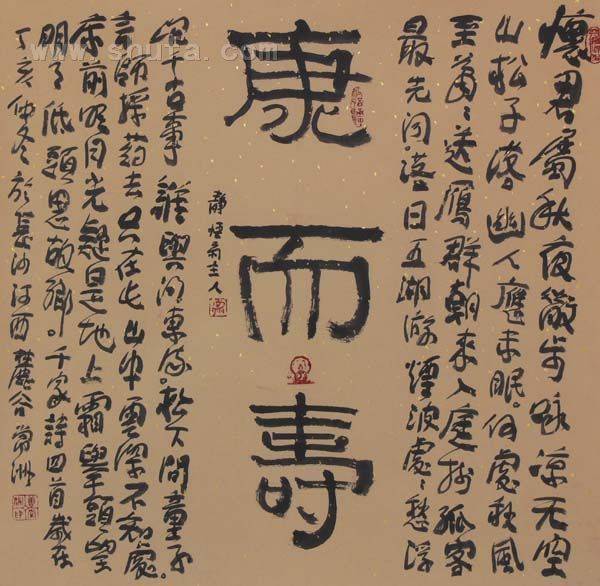 懷君屬秋夜散步咏涼天空
山松子落幽人應未眠。何處秋風
至蕭〻送雁群朝來入庭樹孤客
最先聞落日五湖游煙波處〻愁浮
康而壽
主人
沉千古事誰與問東流。松下問童子
言師採藥去只在此山中雲深不知處。
床前明月光疑是地上霜舉頭望
明月低頭思故鄉。千家詩四首歲在
丁亥仲冬於長沙河西
www.shufa.com